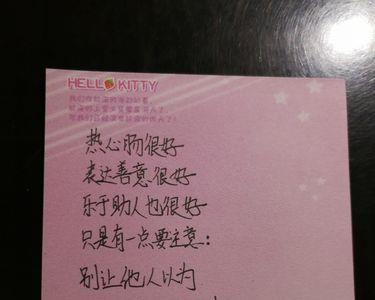 HELLO KITTY
热心肠很好
表达善意很好
乐于助人也很好
只是有一点要注意：
别让他人以为